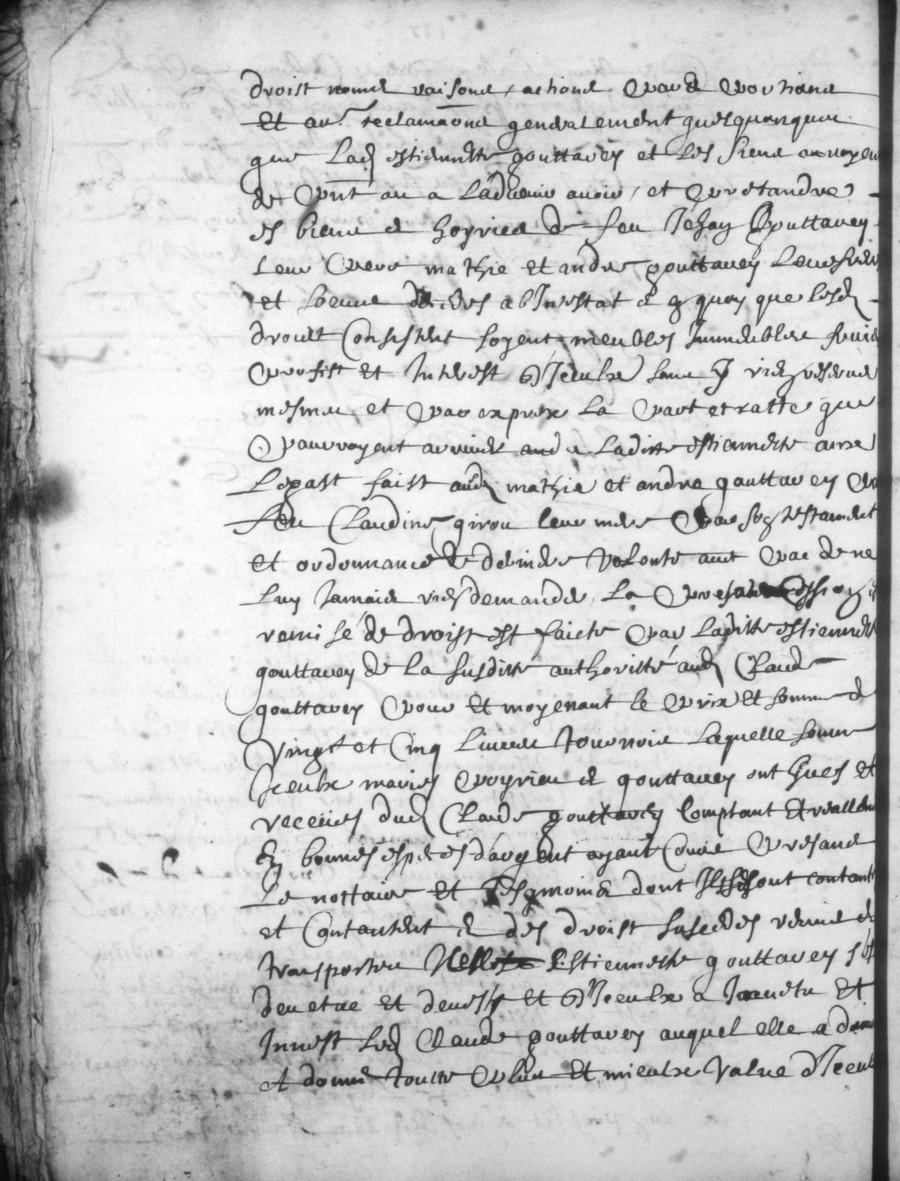 droist noms raisons actions partz portions
Et aus. reclamaons generalement quelquonques
que Lad estiennette gouttarey et Les siens au noyen
de pnt ou a Ladvenir avoir et pretandre
es biens et hoyries de feu Jehan gouttarey
Leur pere mathie et andre gouttarey Leurs freres
et soeurs decedes abInestat et en quoy que lesd
droictz Consistent soyent meubles Immeubles fruis
proffist et Interest d'Iceulx sans y rien reserver
mesmes et par exprex La part et ratte que
pourroyent advenir a Laditte estiennette
Legast faist aud mathie et andre gouttarey
feu Claudine girou leur mere par son testament
et ordonnance de derniere volonte aut pac de ne
Luy Jamais rien demander La presante Cession et
remise de droist est faicte par Laditte estiennette
gouttarey de la susditte authoritte aud Claude
gouttarey pour Et moyenant le prix Et somme de
Vingt et Cinq Livres tournois Laquelle somme
Iceulx maries poyrieu et gouttarey ont heues et
receües dud Claude gouttarey Comptant Et reallem
En bonnes espèces d'argent ayant Cours presans
Le nottaire et tesmoings dont Ilz se sont contant
et Contantent et des droist susceddes remis et
transportes Estiennette gouttarey s'est
devetue et devestz et d'Iceulx a Inveitu Et
Invest Led Claude gouttarey auquel elle a donne
et donne toutte plus Et mieulx value d'Iceulx